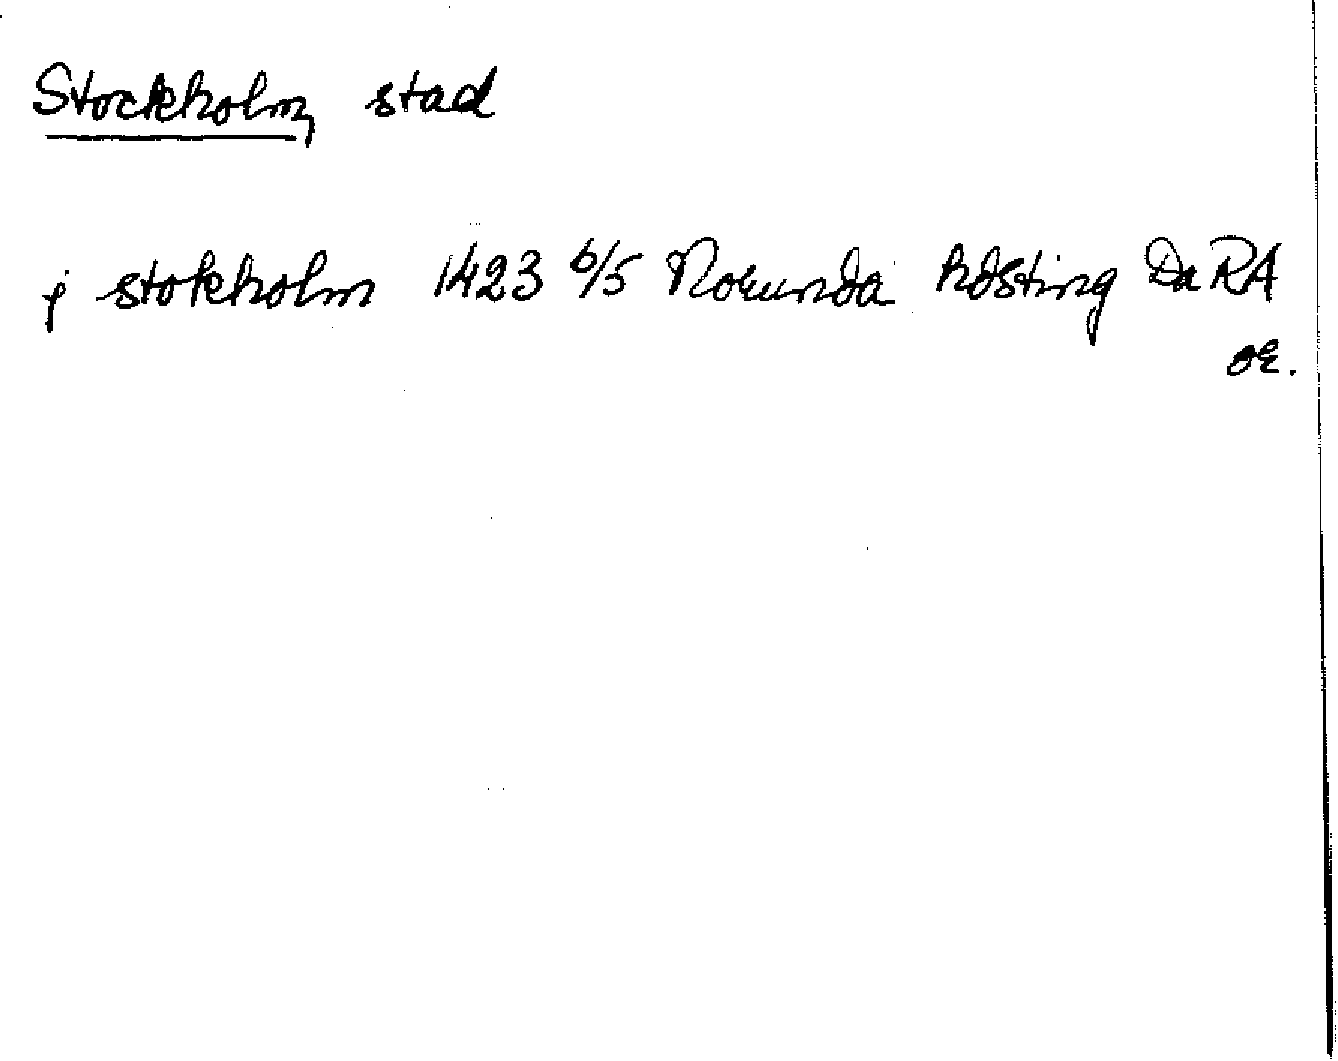 Stockholm, stad
j stokholm 1423 6/5 Norunda hdsting Da RA
or.